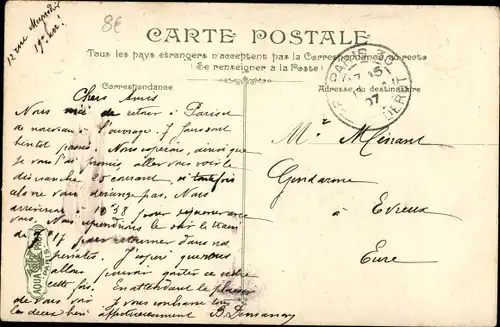 12 rue
19e arr.
8€
CARTE POSTALE
Tous les pays étrangers n'acceptent pas la Correspondance au recto
(Se renseigner à la Poste)
Correspondance
Adresse du destinataire
PARIS
07
Chers Amis
Nous de retour à Paris et
de nouveau à l'ouvrage. 7 jours sont
bientôt passés. Nous espérons, ainsi que
je vous l'ai promis, aller vous voir le
dimanche 25 courant, si toutefois
cela ne vous dérange pas. Nous
arriverons à 10h38 pour
Nous reprendrons le soir le train
de 17 pour retourner dans nos
J'espère que nous
allons pouvoir goûter ce cidre
cette fois. En attendant le plaisir
de vous voir je vous embrasse tous
les deux bien affectueusement B.
Mr
Gendarme
à Evreux
Eure
AQUA PHOTO
PARIS